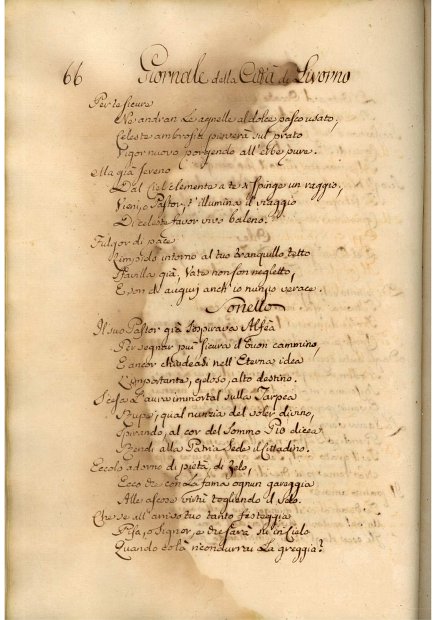 66 Giornale della Città di Livorno
Per te sicure
Ne andran Le agnelle al dolce pasco usato,
Celeste ambrosia pioverà sul prato
Vigor nuovo porgendo all' erbe pure.
Ma già sereno
Dal Ciel clemente a te spinge un raggio,
Vieni, o Pastor, t' illumina il viaggio
Di celeste favor vivo baleno.
Fulgor di pace
intorno al tuo tranquillo tetto
Sfavilla già, Vate non son negletto,
E son di augurj anch' io nunzio verace.
Sonetto
Il suo Pastor già Sospirava Alfea
Per segnar più sicura il buon cammino,
E ancor chiudeasi nell' Eterna idea
L'importante, geloso, alto destino.
Scesa L'aura immortal sulla Tarpea
Rupe, qual nunzia del voler divino,
Spirando, al cor del Sommo Pio dicea
Rendi alla Patria Sede il Cittadino.
Eccolo adorno di pietà, di Zelo,
Ecco che con La fama ognun gareggia
Alle ascose virtù togliendo il Velo.
Che se all' arrivo tuo tanto festeggia
Pisa, o Signor, e che farà sù in Cielo
Quando colà ricondurrai La greggia?